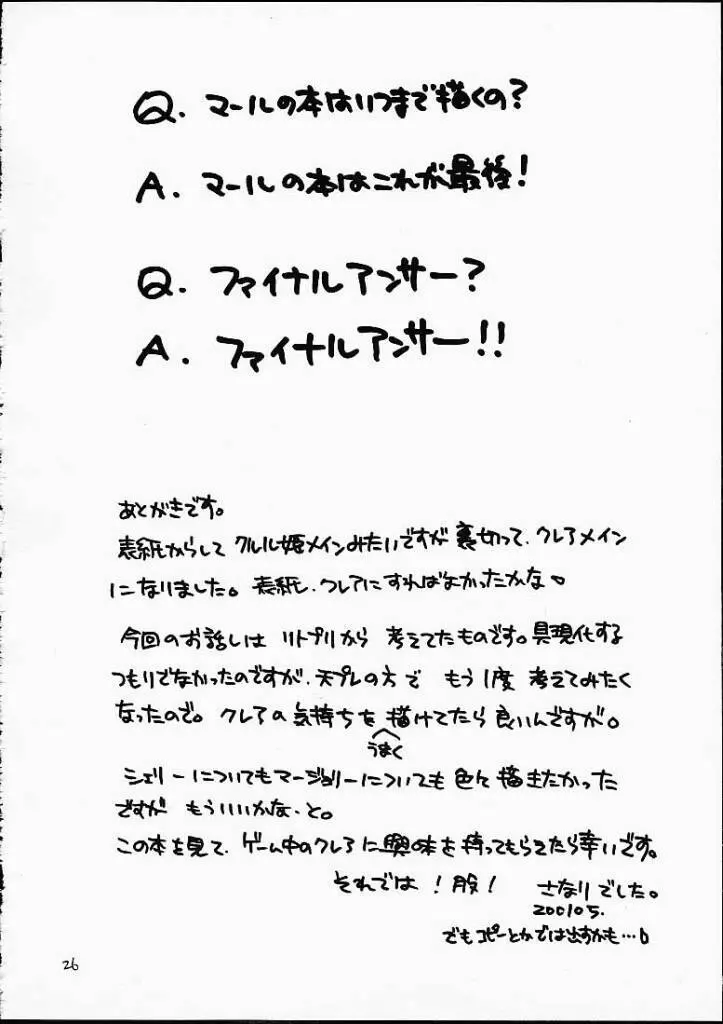 Q. マールの本はいつまで描くの?
A. マールの本はこれが最後!
Q. ファイナルアンサー?
A. ファイナルアンサー!!
あとがきです。
表紙からして クルル姫メインみたいですが 裏切って、クレアメイン
になりました。表紙、クレアにすればよかったかな。
今回のお話しは リトプリから 考えてたものです。具現化する
つもりでなかったのですが、天プレの方で もう1度 考えてみたく
なったので。クレアの気持ちを 描けてたら 良いんですが。
うまく
シェリーについてもマージョリーについても 色々 描きたかった
ですが もういいかな、と。
この本を見て、ゲーム中のクレアに興味を 持ってもらえたら幸いです。
それでは!股! さなりでした。
200105.
でもコピーとかでは出すかも…
26